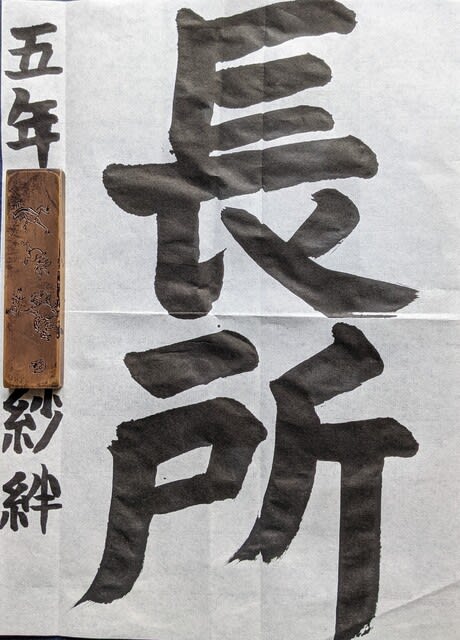 長所
五年
紗絆